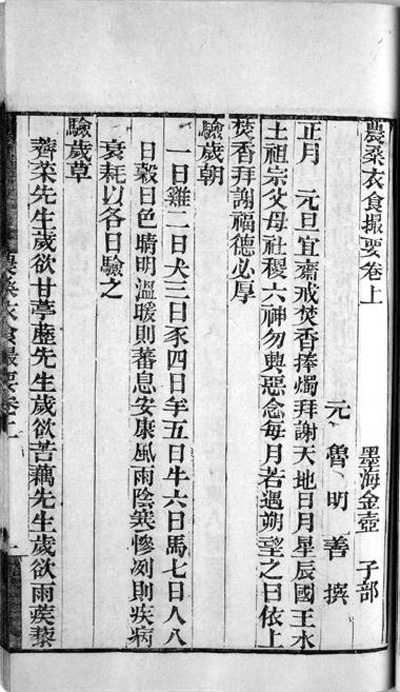 農桑衣食撮要卷上 墨海金壺 子部
元 魯明善 撰
正月 元旦宜齋戒焚香捧燭拜謝天地日月星辰國王水
土祖宗父母社稷六神勿興惡念每月若遇朔望之日依上
焚香拜謝福德必厚
驗歲朝
一日雞二日犬三日豕四日羊五日牛六日馬七日人八
日穀日色晴明溫暖則蕃息安康風雨陰寒慘冽則疾病
衰耗以各日驗之
驗歲草
薺菜先生歲欲甘葶藶先生歲欲苦藕先生歲欲雨蒺藜
農桑衣食撮要卷上 一